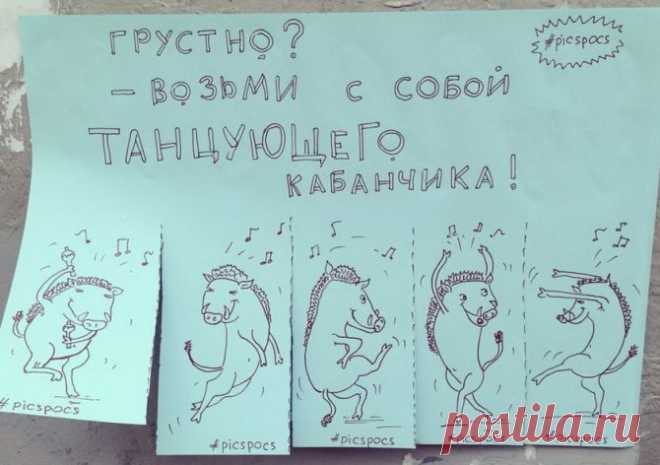 ГРУСТНО?
#picspocs
– ВОЗЬМИ С СОБОЙ
ТАНЦУЮЩЕГО
КАБАНЧИКА!
#picspocs
#picspocs
#picspocs
#picspocs
#picspocs
postila.ru